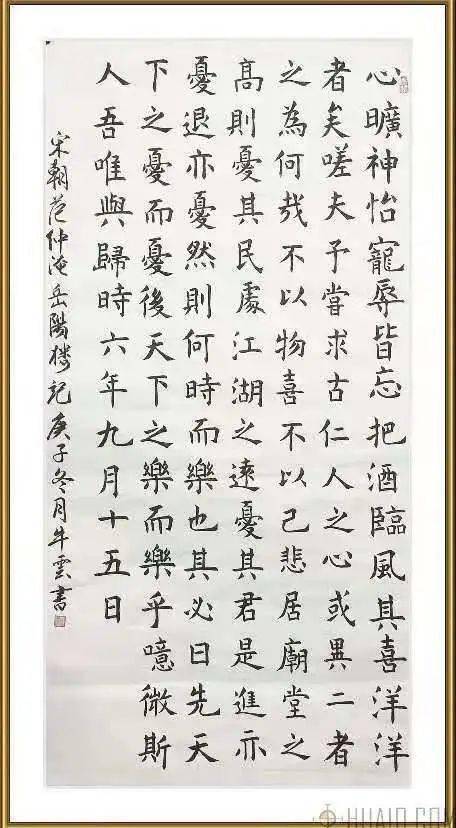 心曠神怡寵辱皆忘把酒臨風其喜洋洋
者矣嗟夫予嘗求古仁人之心或異二者
之為何哉不以物喜不以己悲居廟堂之
高則憂其民處江湖之遠憂其君是進亦
憂退亦憂然則何時而樂也其必曰先天
下之憂而憂後天下之樂而樂乎噫微斯
人吾唯與歸時六年九月十五日
宋朝范仲淹岳陽楼記庚子冬月牛雲書